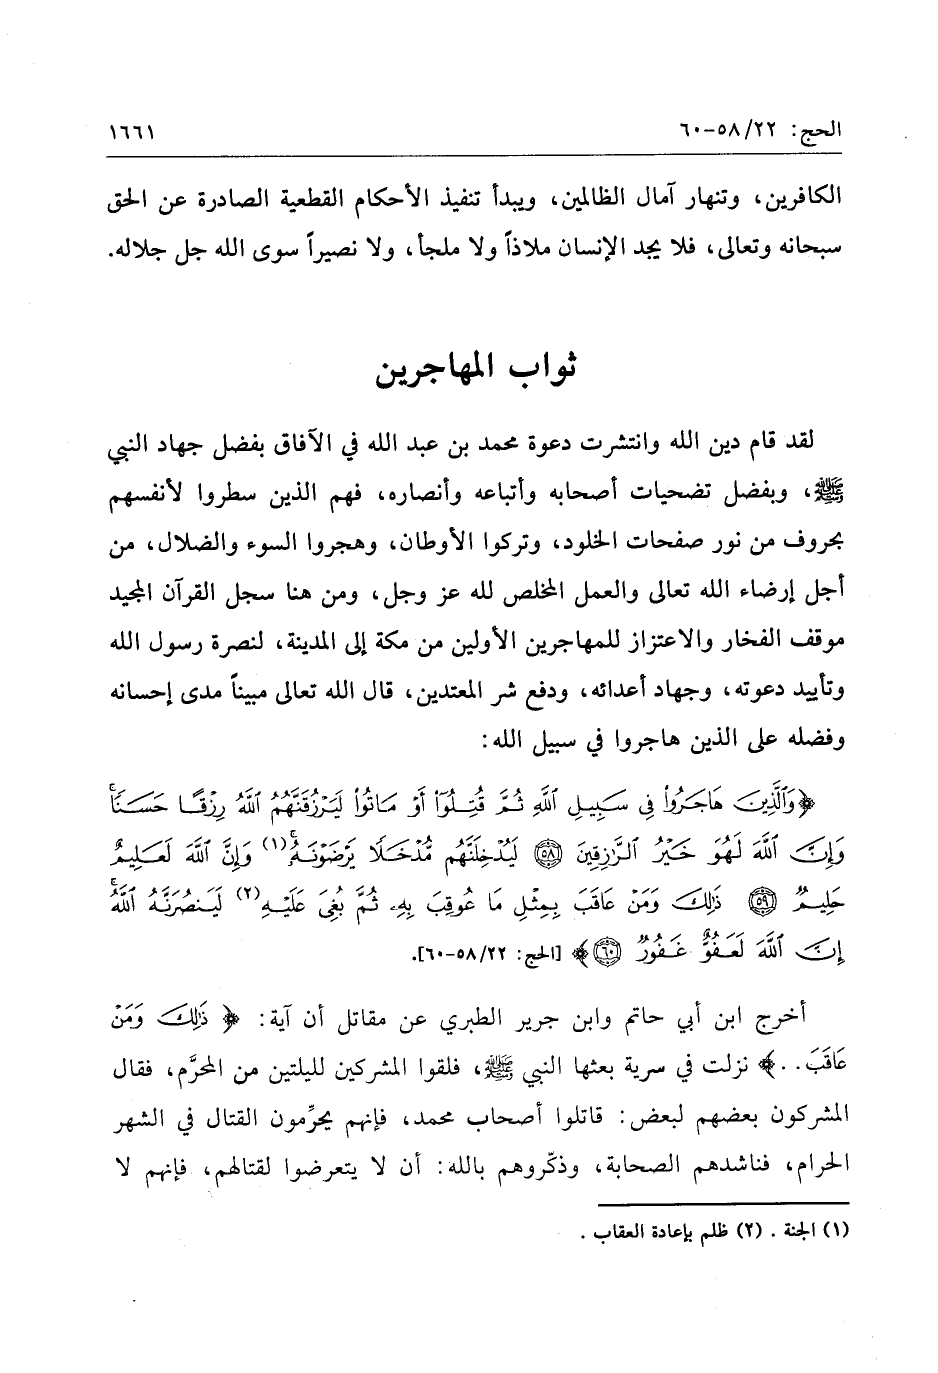 الحج: ٢٢/ ٥٨-٦٠ ١٦٦١
الكافرين، وتنهار آمال الظالمين، ويبدأ تنفيذ الأحكام القطعية الصادرة عن الحق
سبحانه وتعالى، فلا يجد الإنسان ملاذاً ولا ملجأ، ولا نصيراً سوى الله جل جلاله.
ثواب المهاجرين
لقد قام دين الله وانتشرت دعوة محمد بن عبد الله في الآفاق بفضل جهاد النبي
ﷺ، وبفضل تضحيات أصحابه وأتباعه وأنصاره، فهم الذين سطروا لأنفسهم
بحروف من نور صفحات الخلود، وتركوا الأوطان، وهجروا السوء والضلال، من
أجل إرضاء الله تعالى والعمل المخلص لله عز وجل، ومن هنا سجل القرآن المجيد
موقف الفخار والاعتزاز للمهاجرين الأولين من مكة إلى المدينة، لنصرة رسول الله
وتأييد دعوته، وجهاد أعدائه، ودفع شر المعتدين، قال الله تعالى مبيناً مدى إحسانه
وفضله على الذين هاجروا في سبيل الله:
﴿وَٱلَّذِينَ هَاجَرُوا۟ فِى سَبِيلِ ٱللَّهِ ثُمَّ قُتِلُوٓا۟ أَوْ مَاتُوا۟ لَيَرْزُقَنَّهُمُ ٱللَّهُ رِزْقًا حَسَنًاۚ
وَإِنَّ ٱللَّهَ لَهُوَ خَيْرُ ٱلرَّٰزِقِينَ ٥٨ لَيُدْخِلَنَّهُم مُّدْخَلًا يَرْضَوْنَهُۥۚ(١) وَإِنَّ ٱللَّهَ لَعَلِيمٌ
حَلِيمٌ ٥٩ ذَٰلِكَ وَمَنْ عَاقَبَ بِمِثْلِ مَا عُوقِبَ بِهِۦ ثُمَّ بُغِىَ عَلَيْهِ(٢) لَيَنصُرَنَّهُ ٱللَّهُۚ
إِنَّ ٱللَّهَ لَعَفُوٌّ غَفُورٌ ٦٠﴾ [الحج: ٢٢/ ٥٨-٦٠].
أخرج ابن أبي حاتم وابن جرير الطبري عن مقاتل أن آية: ﴿ ذَٰلِكَ وَمَنْ
عَاقَبَ..﴾ نزلت في سرية بعثها النبي ﷺ، فلقوا المشركين لليلتين من المحرَّم، فقال
المشركون بعضهم لبعض: قاتلوا أصحاب محمد، فإنهم يحرِّمون القتال في الشهر
الحرام، فناشدهم الصحابة، وذكّروهم بالله: أن لا يتعرضوا لقتالهم، فإنهم لا
(١) الجنة . (٢) ظلم بإعادة العقاب .